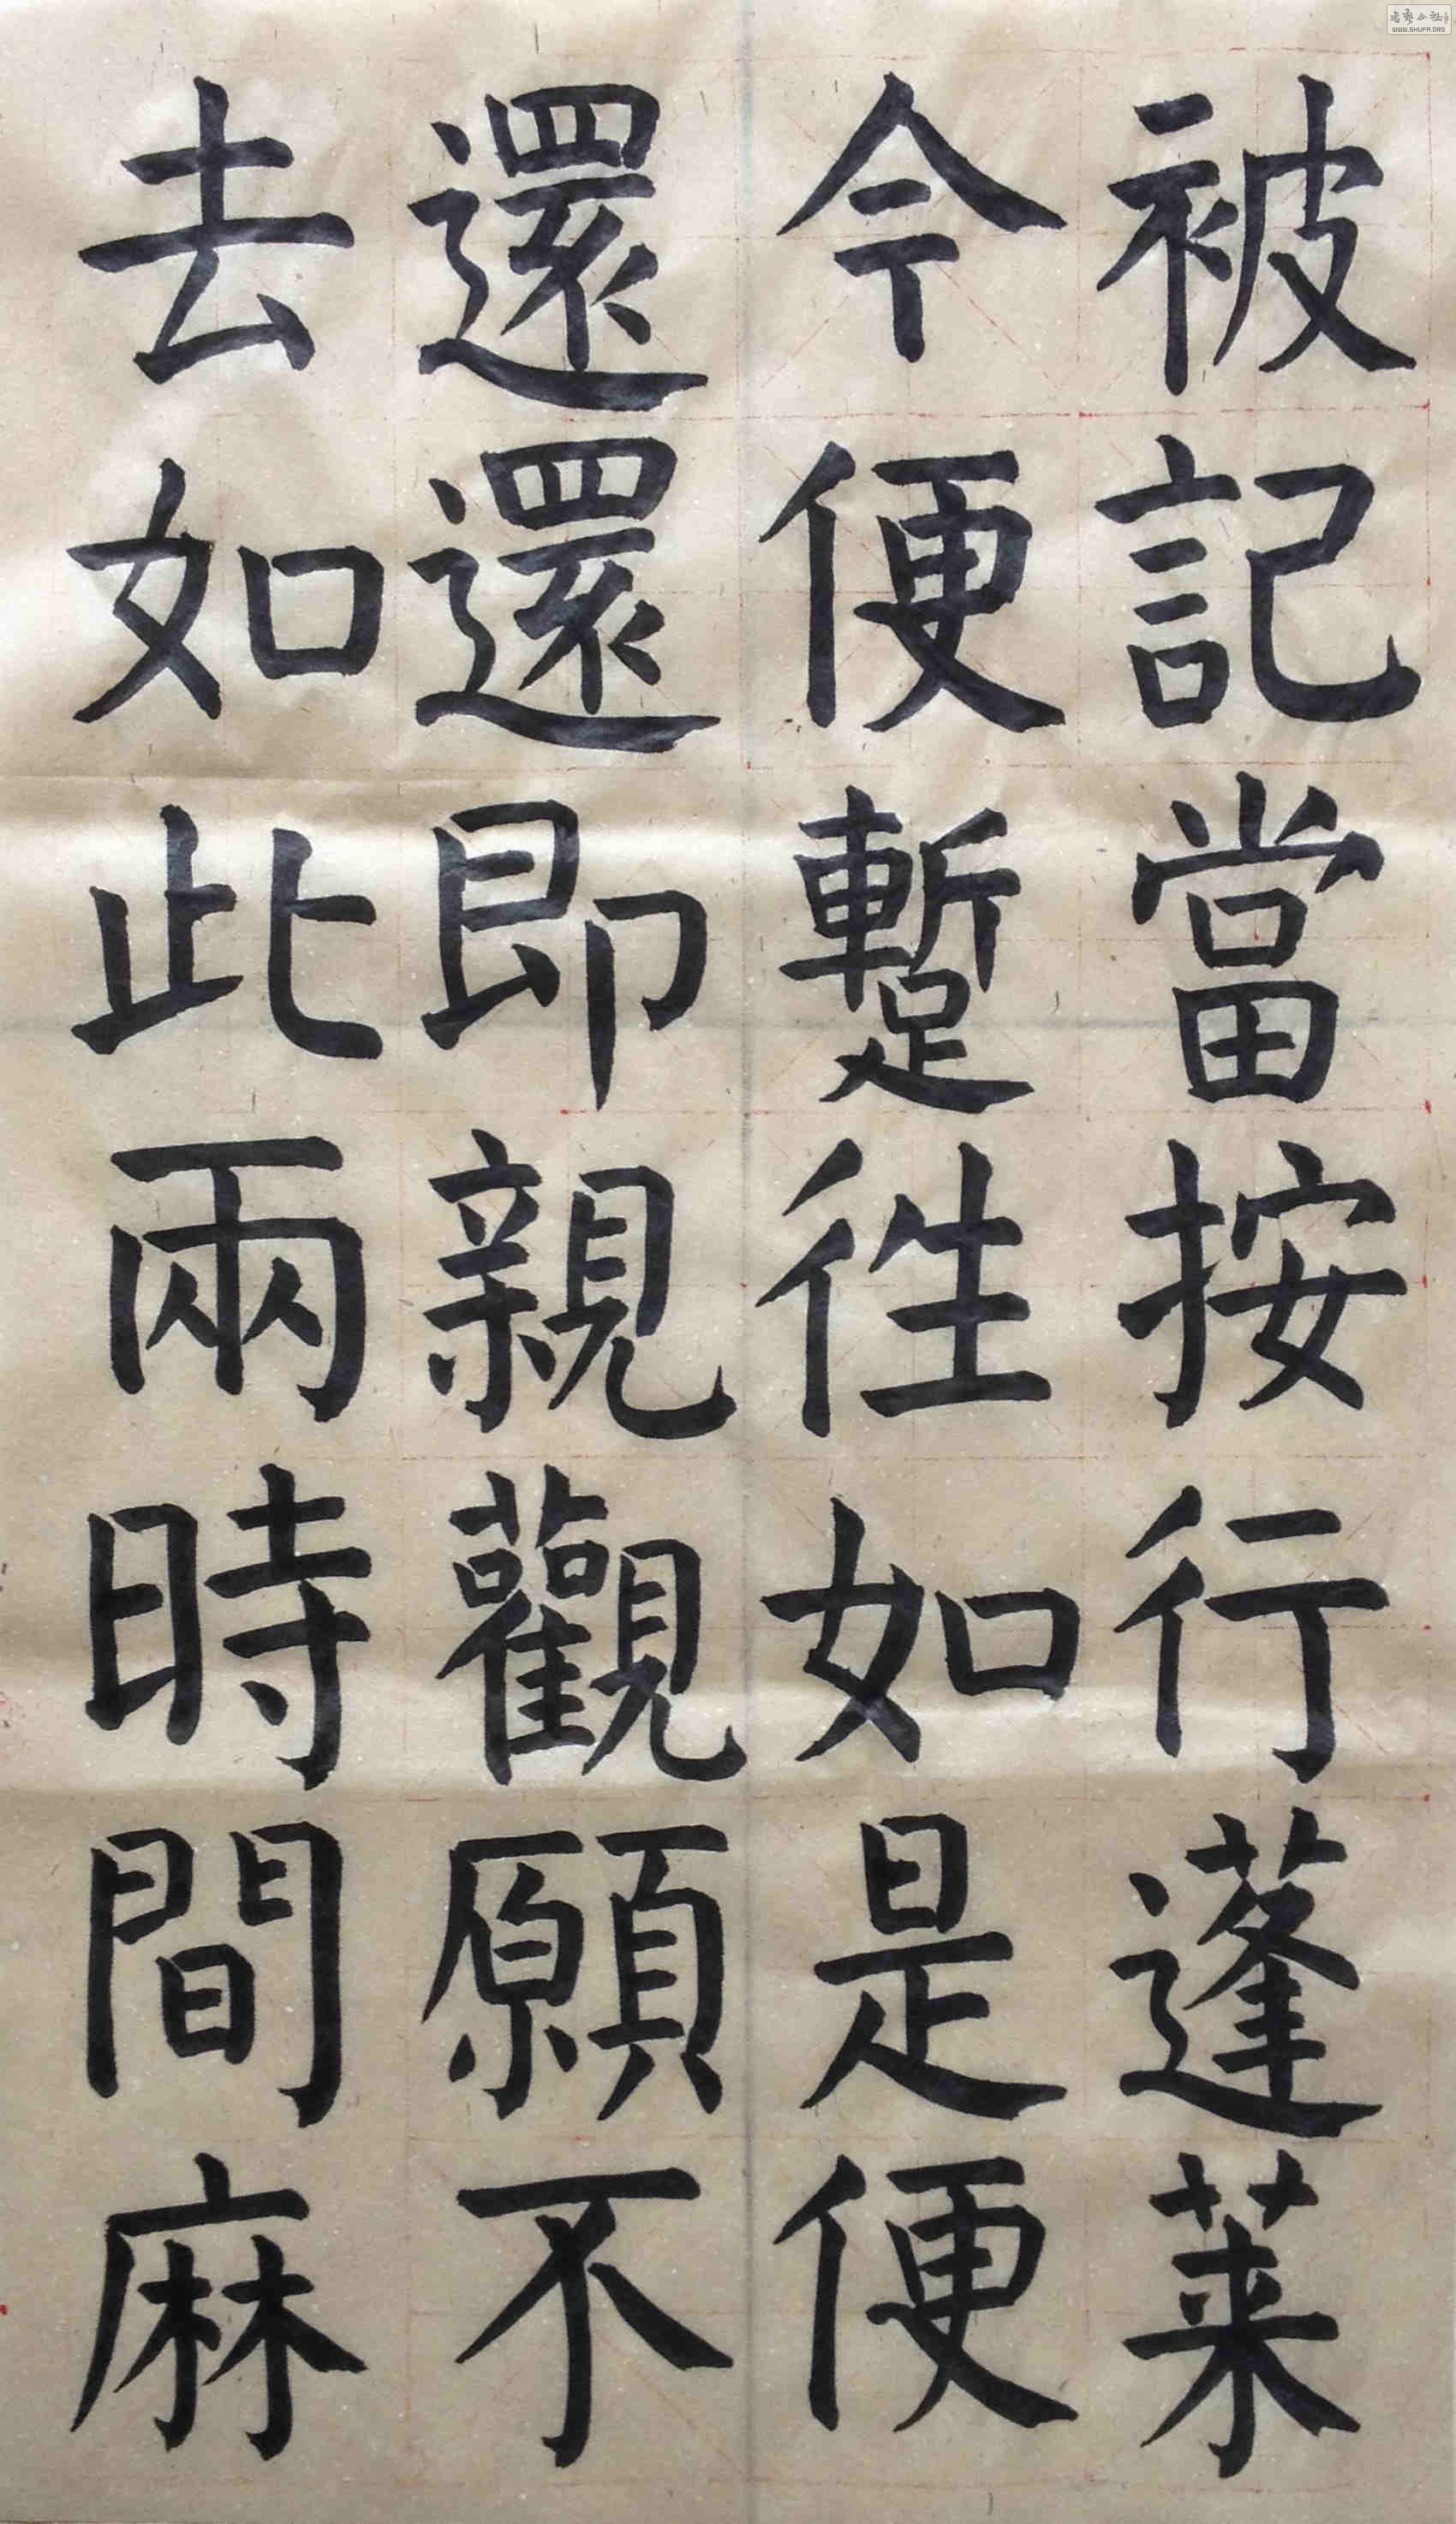 被記當按行蓬萊
今便蹔往如是便
還還即親觀願不
去如此兩時間麻
WWW.SHUFA.ORG